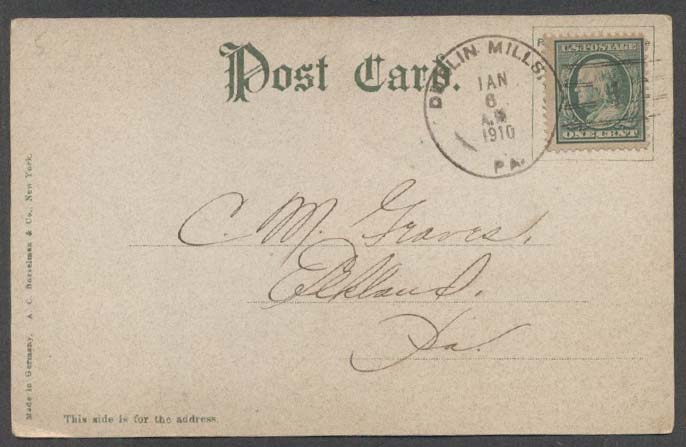 5
Post Card.
DUBLIN MILLS,
JAN
6
A.M
1910
PA.
U.S. POSTAGE
ONE CENT
C. M. Graves,
Elkland,
Pa.
Made in Germany. A. C. Bosselman & Co., New York.
This side is for the address.